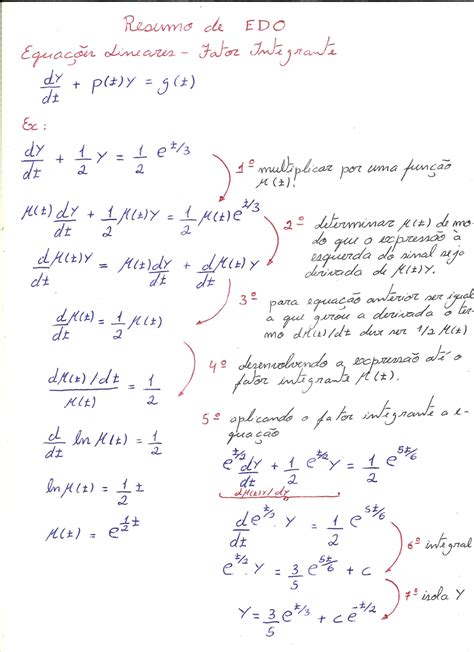 Resumo de EDO
Equações Lineares - Fator Integrante
dY/dt + p(t)Y = g(t)
Ex:
dY/dt + 1/2 Y = 1/2 e^t/3
1º multiplicar por uma função μ(t).
μ(t) dY/dt + 1/2 μ(t)Y = 1/2 μ(t)e^t/3
2º determinar μ(t) de mo-
do que o expressão à
esquerda do sinal seja
derivada de μ(t)Y.
d/dt μ(t)Y = μ(t)dY/dt + dμ(t)/dt Y
3º para equação anterior ser igual
a que gerou a derivada o ter-
mo dμ(t)/dt deve ser 1/2 μ(t)
dμ(t)/dt = 1/2 μ(t)
4º desenvolvendo a expressão até o
fator integrante μ(t).
dμ(t)/dt / μ(t) = 1/2
d/dt ln μ(t) = 1/2
ln μ(t) = 1/2 t
μ(t) = e^1/2 t
5º aplicando o fator integrante a e-
quação
e^t/2 dY/dt + 1/2 e^t/2 Y = 1/2 e^5t/6
dμ(t)Y/dy
d/dt e^t/2 . Y = 1/2 e^5t/6
6º integral
e^t/2 . Y = 3/5 e^5t/6 + c
7º isola Y
Y = 3/5 e^t/3 + ce^-t/2